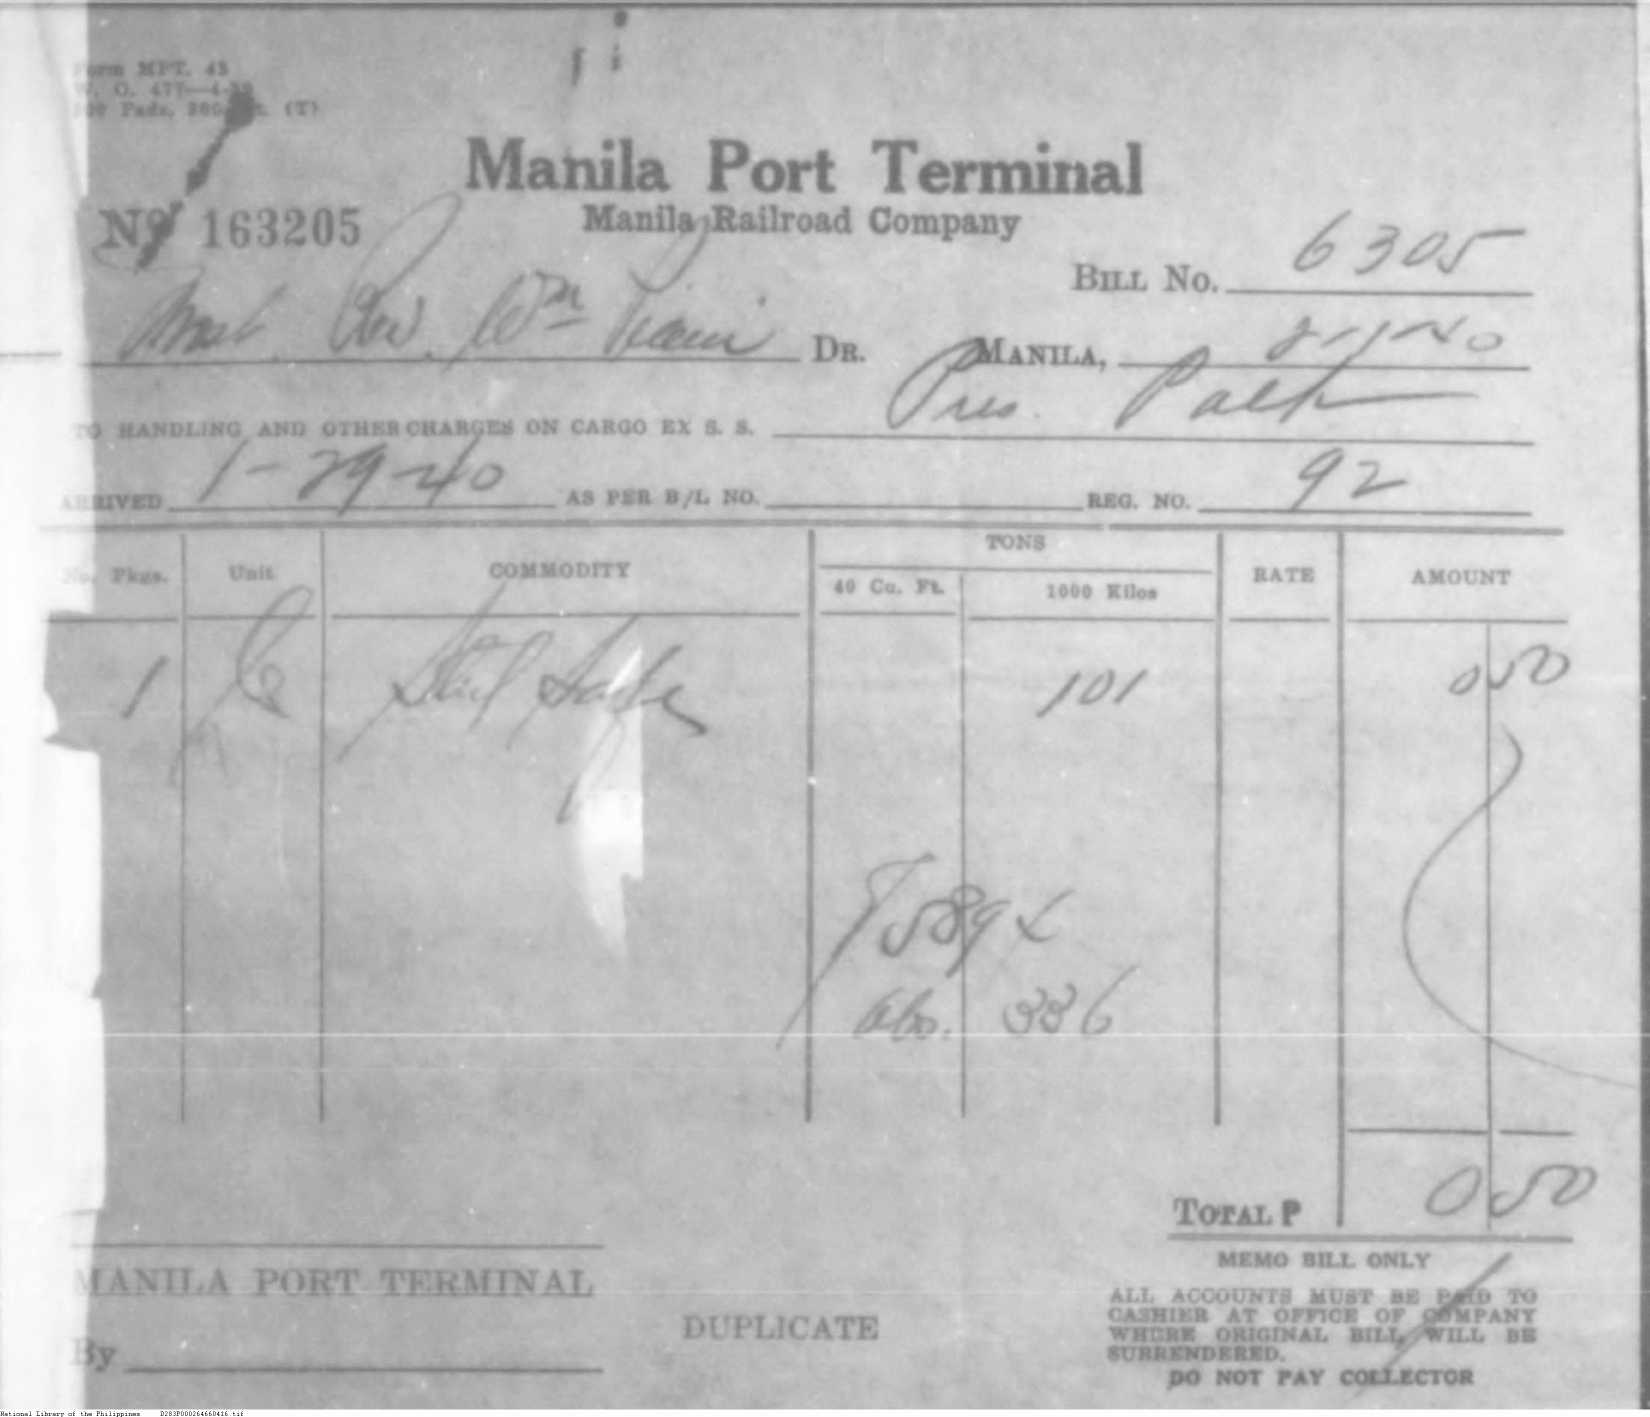 Form MPT. 43
W. O. 477—4-39
Pads, (T)
Manila Port Terminal
Nº 163205
Manila Railroad Company
BILL NO. 6305
Most. Rev. Wm Piani DR. MANILA, 2-1-40
TO HANDLING AND OTHER CHARGES ON CARGO EX S. S. Pres.
ARRIVED 1-29-40 AS PER B/L NO. REG. NO. 92
TONS
No. Pkgs. Unit COMMODITY 40 Cu. Ft. 1000 Kilos RATE AMOUNT
1 Steel Safe 101 0 50
589
Abs. 336
TOTAL ₱ 0 50
MEMO BILL ONLY
MANILA PORT TERMINAL
ALL ACCOUNTS MUST BE PAID TO
CASHIER AT OFFICE OF COMPANY
WHERE ORIGINAL BILL WILL BE
SURRENDERED.
DUPLICATE
By
DO NOT PAY COLLECTOR
National Library of the Philippines D283P000264660416.tif